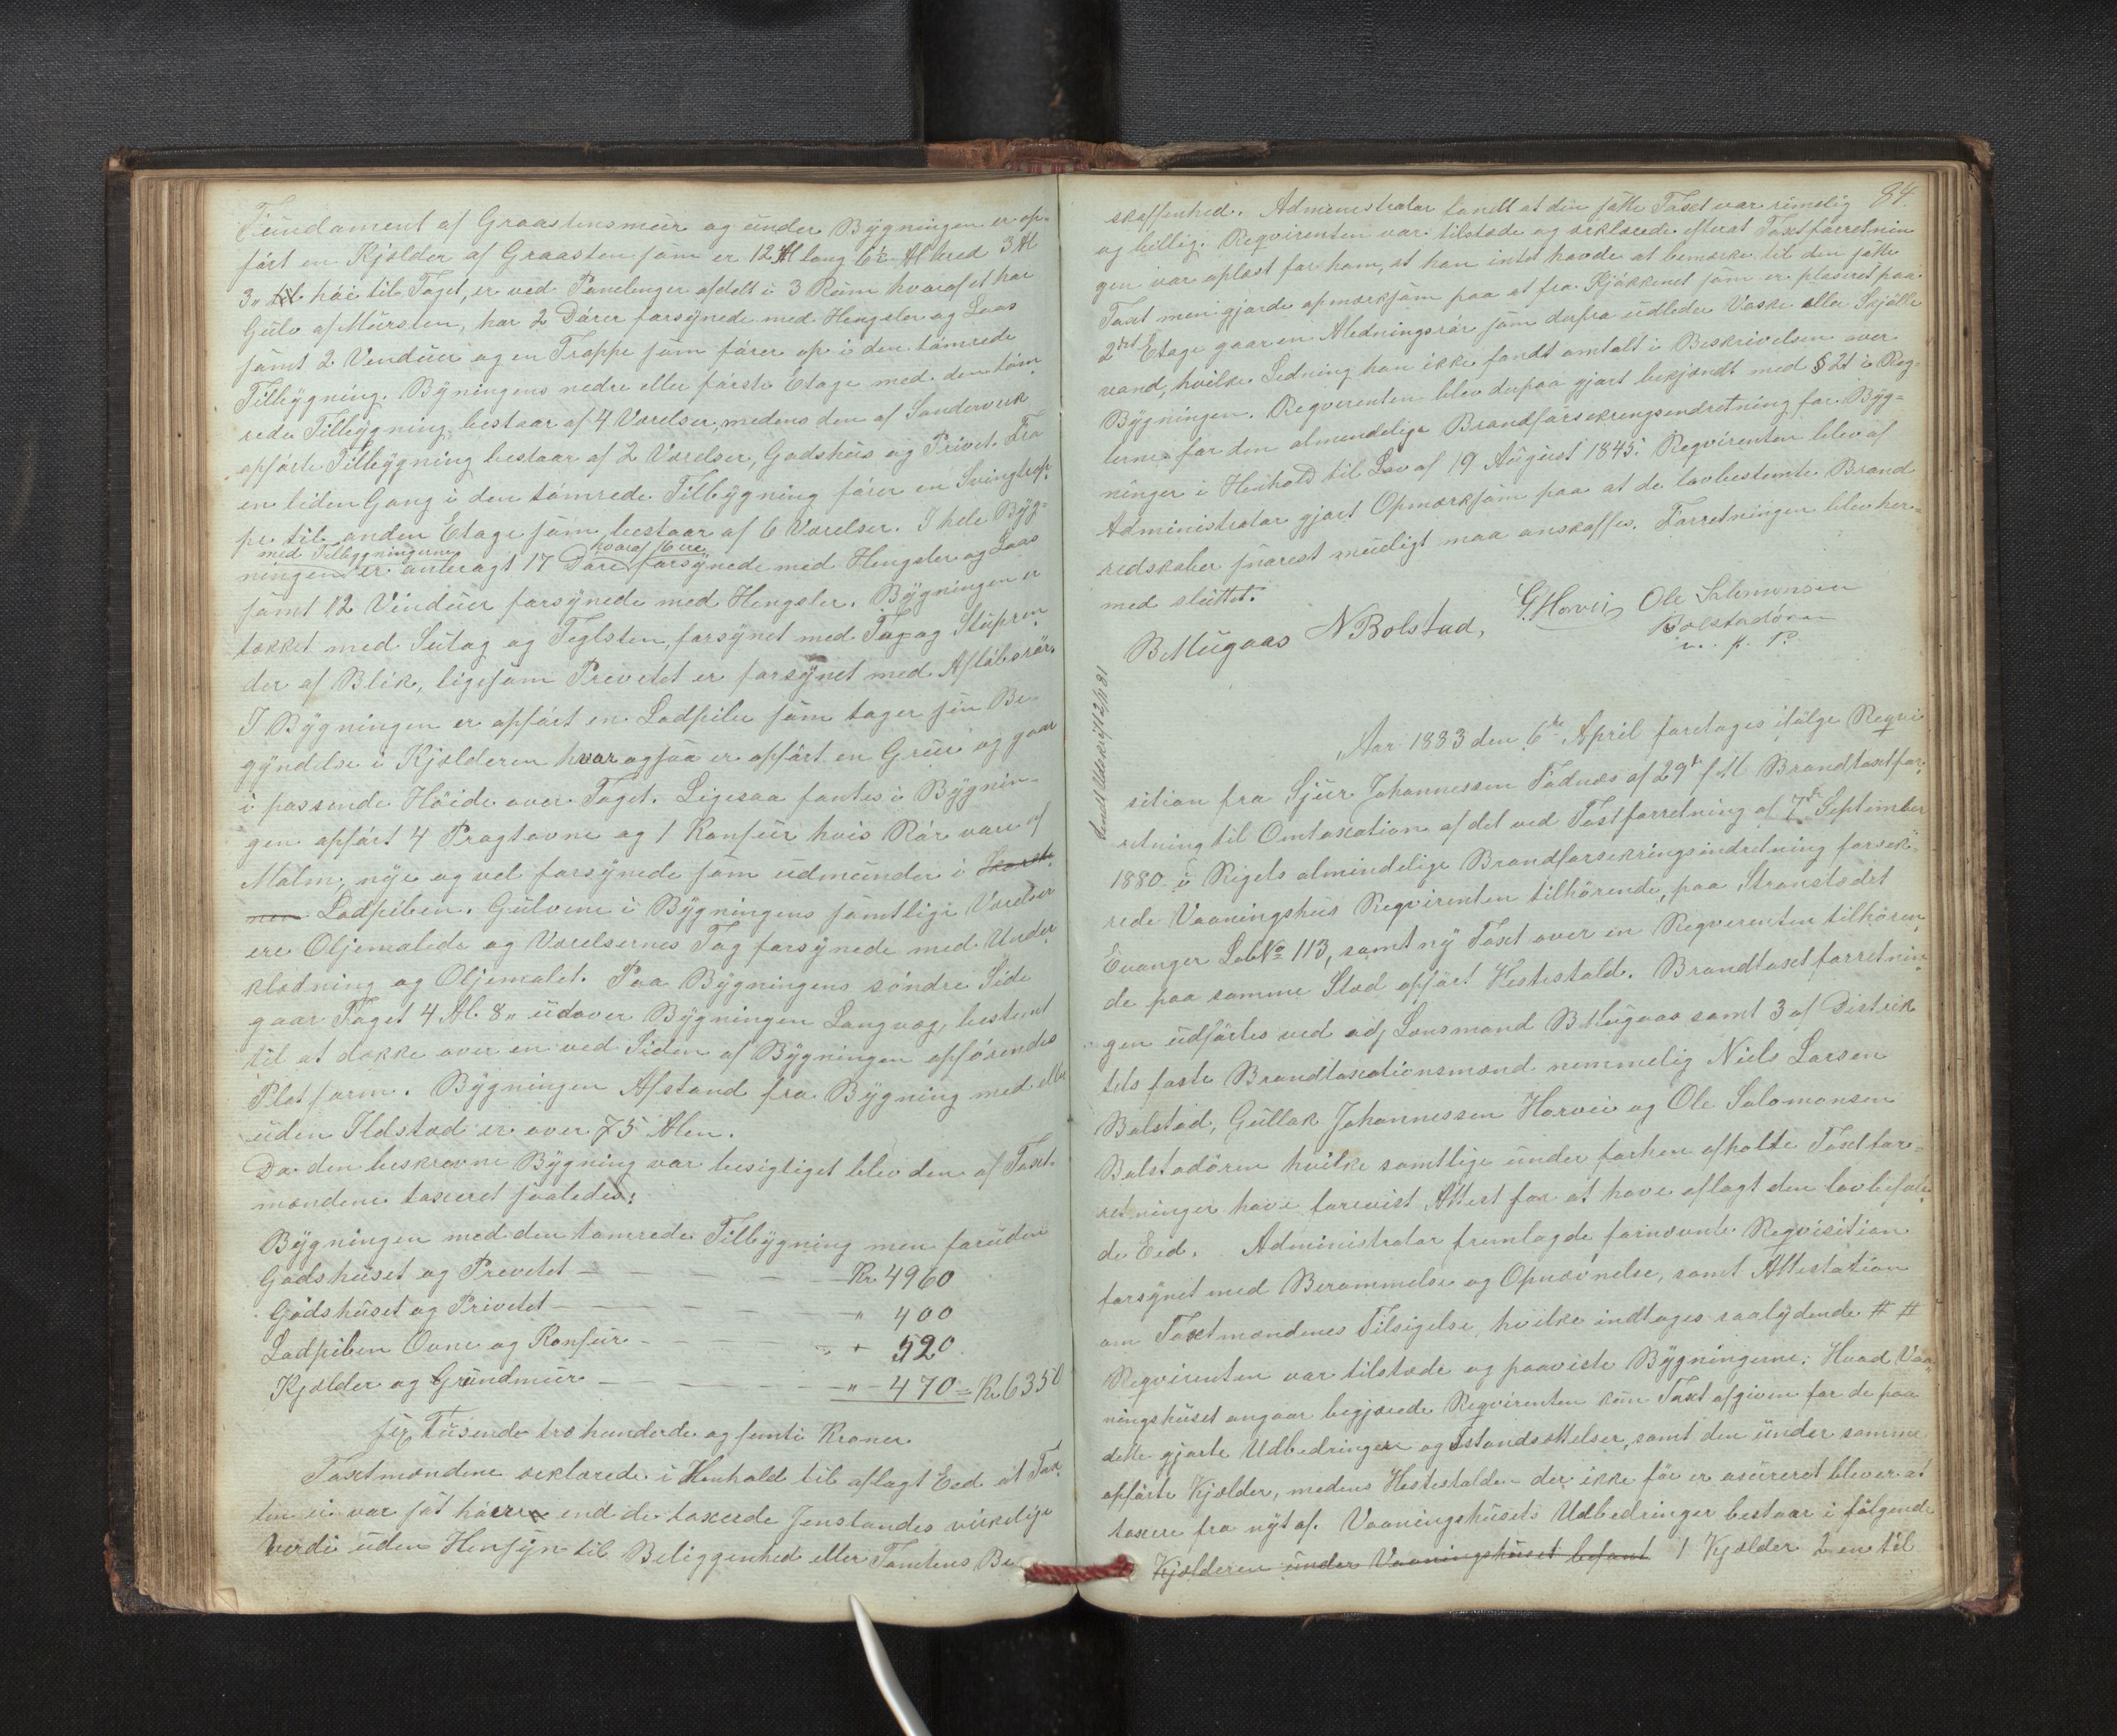 Fundament af Graastensmur og under Bygningen er op-
ført en Kjælder af Graasten som er 12 Al lang 6½ Al bred 3 Al
3" høi til Taget, er ved Panelinger afdelt i 3 Rum hvoraf et har
Gulv af Mursten, har 2 Dører forsynede med Hengsler og Laas
samt 2 Vinduer og en Trappe som fører op i den tømrede
Tilbygning. Bygningens nedre eller første Etage med den tøm-
rede Tilbygning bestaar af 4 Værelser, medens den af Sanderverk
opførte Tilbygning bestaar af 2 Værelser, Godshus og Privet. Fra
en liden Gang i den tømrede Tilbygning fører en Svingtrap-
pe til anden Etage som bestaar af 6 Værelser. I hele Byg-
med Tilbygningerne hvoraf 16 ere
ningen er anbragt 17 Døre forsynede med Hengsler og Laas
samt 12 Vinduer forsynede med Hengsler. Bygningen er
tækket med Sutag og Teglsten, forsynet med Tag og Stupren-
der af Blik, ligesom Prevetet er forsynet med Afløbsrør.
I Bygningen er opført en Ladpibe som tager sin Be-
gyndelse i Kjælderen hvor ogsaa er opført en Grue og gaar
i passende Høide over Taget. Ligesaa fantes i Bygnin-
gen opført 4 Pragtovne og 1 Komfur hvis Rør vare af
Malm, nye og vel forsynede som udmunder i
Ladpiben. Gulvene i Bygningens samtlige Værelser
ere Oljemalede og Værelsernes Tag forsynede med Under-
klædning og Oljemalet. Paa Bygningens søndre Side
gaar Taget 4 Al. 8" udover Bygningen Langvæg, bestemt
til at dække over en ved Siden af Bygningen opførendes
Platform. Bygningen Afstand fra Bygning med eller
uden Ildsted er over 75 Alen.
Da den beskrevne Bygning var besigtiget blev den af Taxt-
mændene taxeret saaledes:
Bygningen med den tømrede Tilbygning men foruden
Godshuset og Prevetet — Kr. 4960
Godshuset og Privetet — " 400
Ladpiben Ovne og Komfur — " 520
Kjælder og Grundmur — " 470 = Kr. 6350
sex Tusende tre hunderde og femti Kroner.
Taxtmændene erklærede i Henhold til aflagt Eed at Tax-
ten ei var sat høiere end de taxerede Jenstandes virkelige
Verdi uden Hensyn til Beliggenhed eller Tomtens Be-
84.
skaffenhed. Administrator fandt at den satte Taxt var rimelig
og billig. Reqvirenten var tilstede og erklærede efterat Taxtforretnin
gen var oplæst for ham, at han intet havde at bemærke til den satte
Taxt men gjorde opmærksom paa at fra Kjøkkenet som er plaseret paa
2den Etage gaar en Aledningsrør som derfra udleder Vaske eller Skjølle
vand, hvilke Ledning han ikke fandt omtalt i Beskrivelsen over
Bygningen. Reqvirenten blev derpaa gjort bekjændt med § 21 i Reg-
lerne for den almendelige Brandforsekrengsendretning for Byg-
ninger i Henhold til Lov af 19 August 1845. Reqvirenten blev af
Administrator gjort Opmærksom paa at de lovbestemte Brand
redskaber snarest mueligt maa anskaffes. Forretningen blev her-
med sluttet.
B Mugaas N Bolstad, G. Horvei Ole Salomonsen
Bolstadøren
m. p. P.
Aar 1883 den 6te April foretages ifølge Reqvi
sition fra Sjur Johannessen Fadnæs af 29de f M Brandtaxtfor-
retning til Omtaxation af det ved Taxtforretning af 7de September
1880 i Rigets almindelige Brandforsekringsindretning forsek-
rede Vaaningshus Reqvirenten tilhørende, paa Stranstedet
Evanger Lob№ 113, samt ny Taxt over en Reqverenten tilhøren-
de paa samme Sted opført Hestestald. Brandtaxtforretnin-
gen udførtes ved adj Lensmand B Mugaas samt 3 af Distrik
tets faste Brandtaxationsmænd nemmelig Niels Larsen
Bolstad, Gullak Johannessen Horvei og Ole Salomonsen
Bolstadøren hvilke samtlige under forhen afholte Taxtfor-
retninger have forevist Attest for at have aflagt den lovbefale-
de Eed. Administrator fremlagde fornævnte Reqvisition
forsynet med Berammelse og Opnævnelse, samt Attestation
om Taxtmændenes Tilsigelse, hvilke indtages saalydende # #
Reqvirenten var tilstede og paaviste Bygningerne: Hvad Vaa-
ningshuset angaar begjærede Reqvirenten kun Taxt afgiven for de paa
dette gjorte Udbedringer og Istandsættelser, samt den under samme
opførte Kjælder, medens Hestestalden der ikke før er asureret blever at
taxere fra nyt af. Vaaningshusets Udbedringer bestaar i følgende
Kjælderen under Vaaningshuset befant 1 Kjælder 2 en til